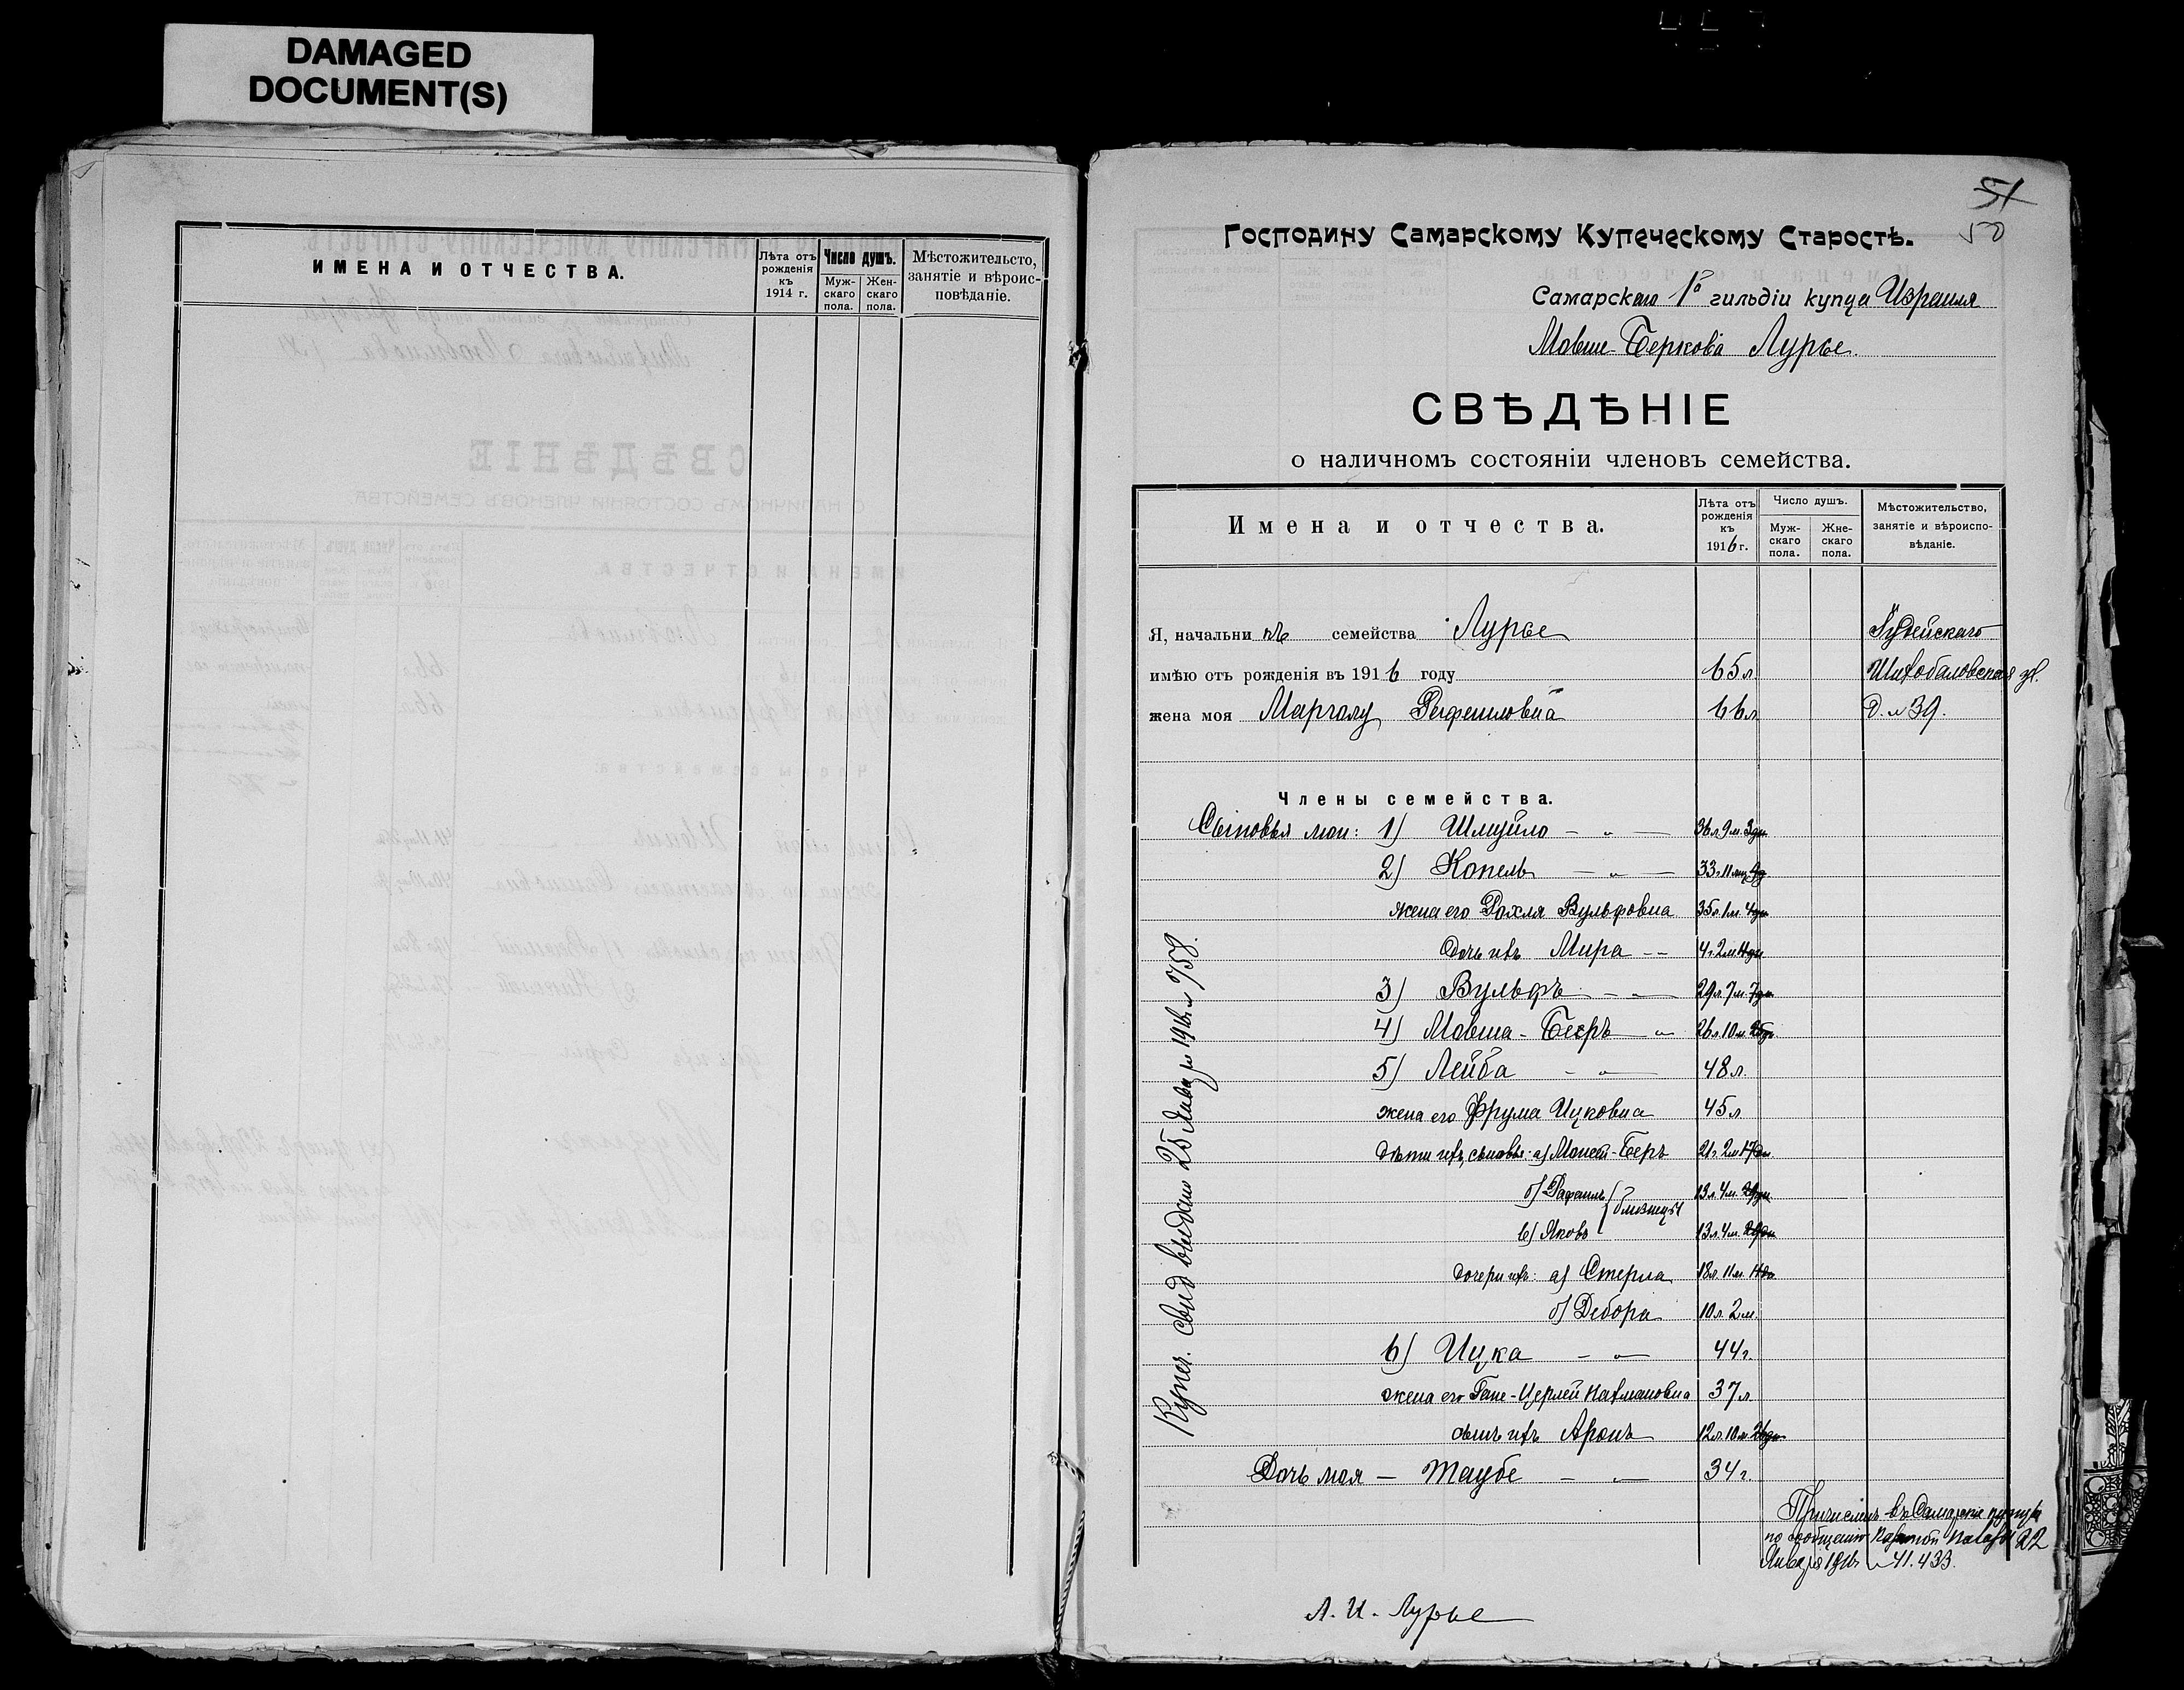 DAMAGED
DOCUMENT(S)
ИМЕНА И ОТЧЕСТВА.
Лѣта отъ рожденія къ 1914 г.
Число душъ.
Муж-скаго пола.
Жен-скаго пола.
Мѣстожительсто, занятіе и вѣроис-повѣданіе.
51
50
Господину Самарскому Купеческому Старостѣ.
Самарскаго 1й гильдіи купца Израиля
Мовше-Беркова Лурье.
СВѢДѢНІЕ
о наличномъ состояніи членовъ семейства.
Имена и отчества.
Лѣта отъ рожденія къ 1916 г.
Число душъ.
Муж-скаго пола.
Жне-скаго пола.
Мѣстожительство, занятіе и вѣроиспо-вѣданіе.
Я, начальникъ семейства Лурье Іудейскаго
имѣю отъ рожденія въ 1916 году 65 л Шихобаловская ул.
жена моя 66 л д. № 39.
Члены семейства.
Сыновья мои: 1) Шмуйло — „ — 36 л 9 м. 3 дн
2) Копель — „ — 33 г 11 м
жена его Рохля Вульфовна 35 л 1 м. 4 дн
дочь ихъ Мира - - 4 г. 2 м 11 дн
3) Вульфъ - — 29 л 7 м. 7 дн
4) Мовша-Беръ „ 26 л 10 м. 25 дн
5) Лейба - „ — 48 л.
жена его Фрума Ицковна 45 л
дѣти ихъ, сыновья: а) -Беръ 21 г 2 м 17 дн
б) Рафаилъ } близнецы 13 л 4 м. 29 дн
в) Яковъ 13 л. 4 м. 29 дн
дочери ихъ: а) Стерна 18 л. 11 м. 11 дн
б) Дебора 10 л. 2 м.
6) Ицка - „ — 44 г.
жена его Нахмановна 37 л
сынъ ихъ Аронъ 12 л. 10 м 26 дн
Дочь моя — Таубе — „ — 34 г.
Купеч. свид выдано 25 Января 1916 г № 758.
Причисленъ въ Самарскіе купцы
по сообщенію Казенной Палаты 22
Января 1916 г № 41.433.
Л. И. Лурье